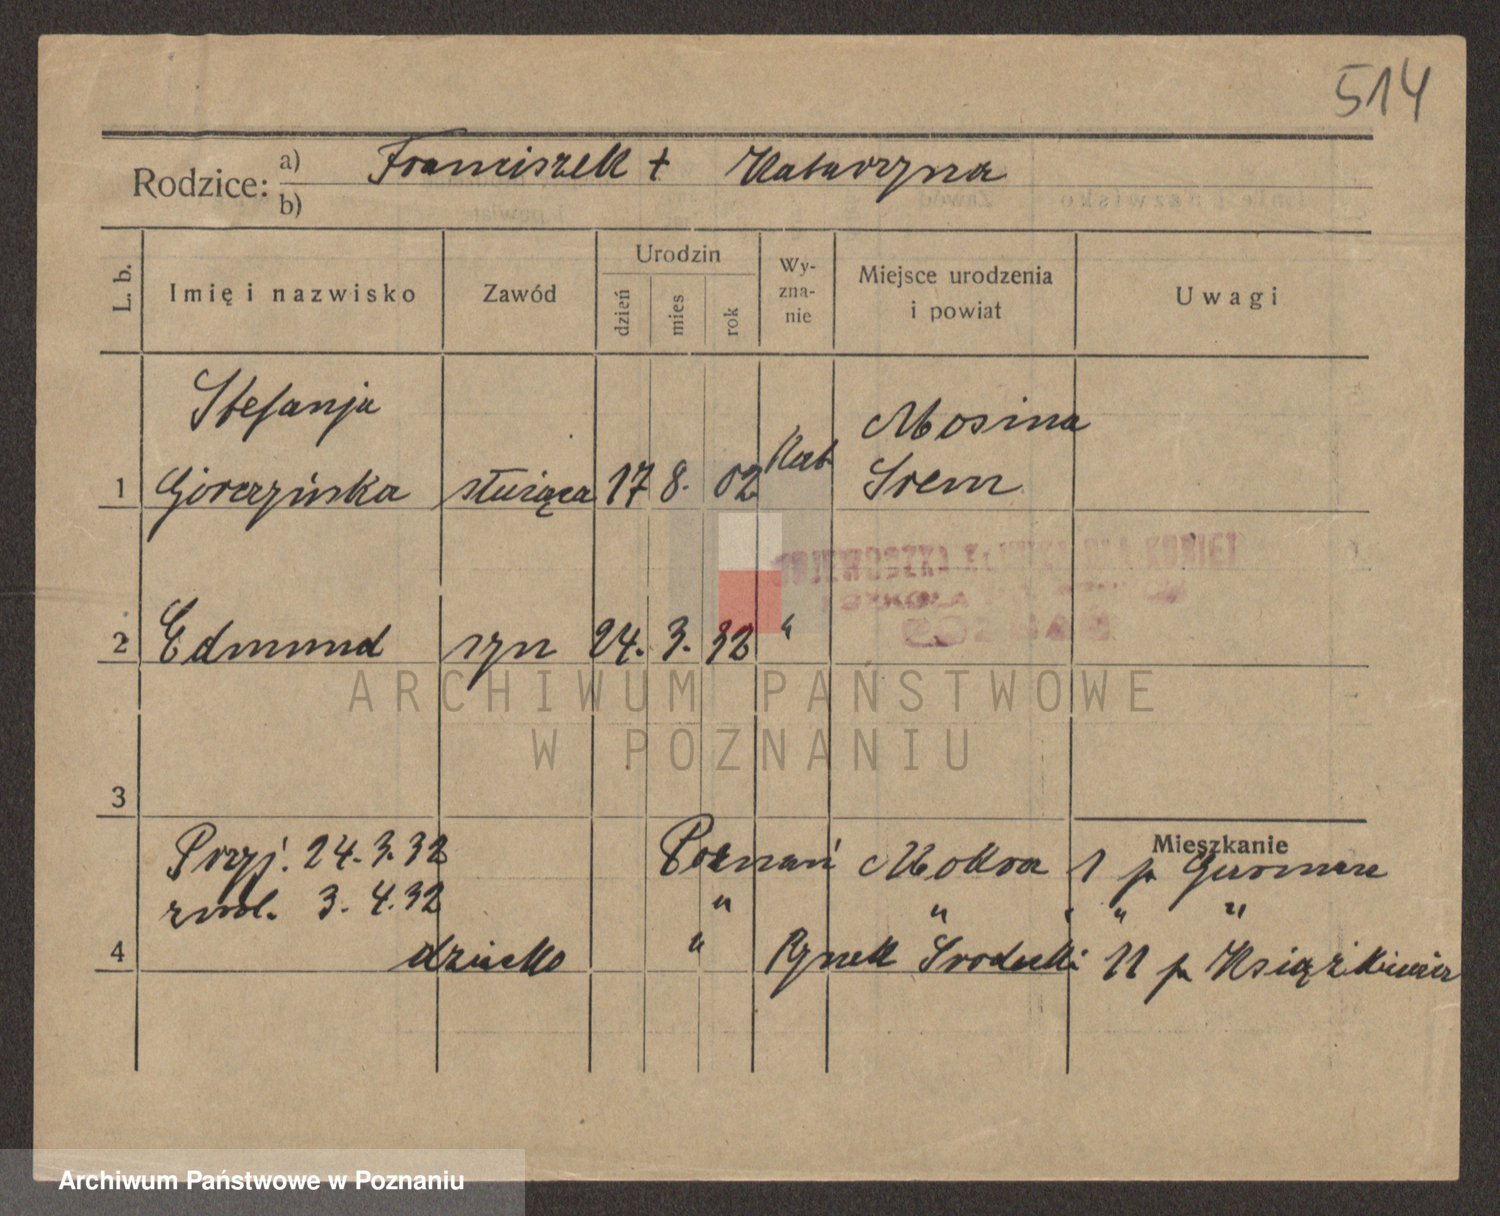 514
Rodzice: a) Franciszek + Katarzyna
b)
L. b. Imię i nazwisko Zawód Urodzin dzień mies rok Wy- zna- nie Miejsce urodzenia i powiat Uwagi
Stefanja Mosina
1 Górczyńska służąca 17 8. 02 Kat Śrem
WOJEWÓDZKA KLINIKA DLA KOBIET
2 Edmund syn 24. 3. 32 "
ARCHIWUM PAŃSTWOWE
W POZNANIU
3
Mieszkanie
Przyj. 24.3.32 Poznań Mokra 1 p
zwol. 3.4.32 " " " "
4 dziecko " Rynek Śródecki 11 p Książkiewicz
Archiwum Państwowe w Poznaniu